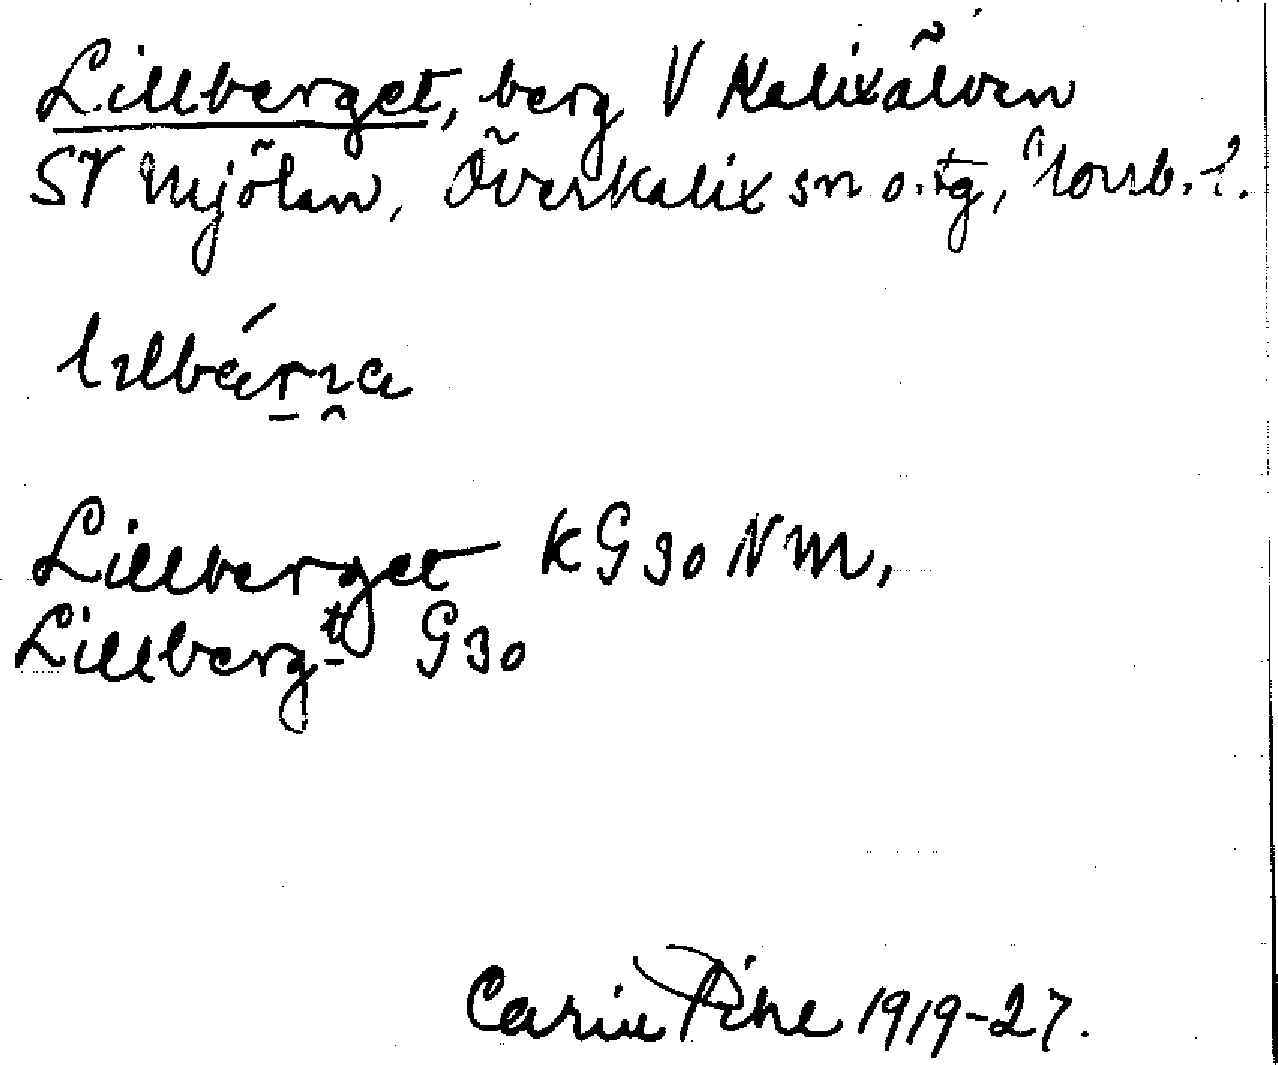 Lillberget, berg V Kalixälven
SV Mjölan, Överkalix sn o. tg, Norrb. l.
Lillberget KG30NM,
Lillberg tt G30
Carin Pihl 1919-27.